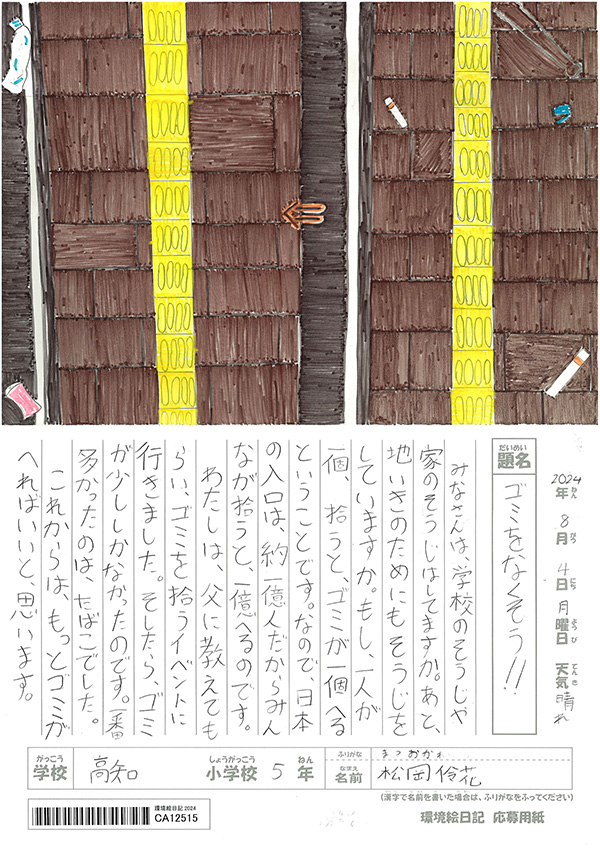 2024年 8月 4日 月曜日 天気 晴れ
ねん がつ にち ようび てんき
だいめい
題名
ゴミをなくそう!!
みなさんは、学校のそうじや
家のそうじはしてますか。あと、
地いきのためにもそうじを
していますか。もし、一人が
一個、拾うと、ゴミが一個へる
ということです。なので、日本
の人口は、約一億人だからみん
なが拾うと、一億へるのです。
わたしは、父に教えても
らい、ゴミを拾うイベントに
行きました。そしたら、ゴミ
が少ししかなかったのです。一番
多かったのは、たばこでした。
これからは、もっとゴミが
へればいいと、思います。
がっこう
学校
高知
しょうがっこう
小学校
5
ねん
年
ふりがな
なまえ
名前
松岡伶花
(漢字で名前を書いた場合は、ふりがなをふってください)
環境絵日記 2024
CA12515
環境絵日記 応募用紙